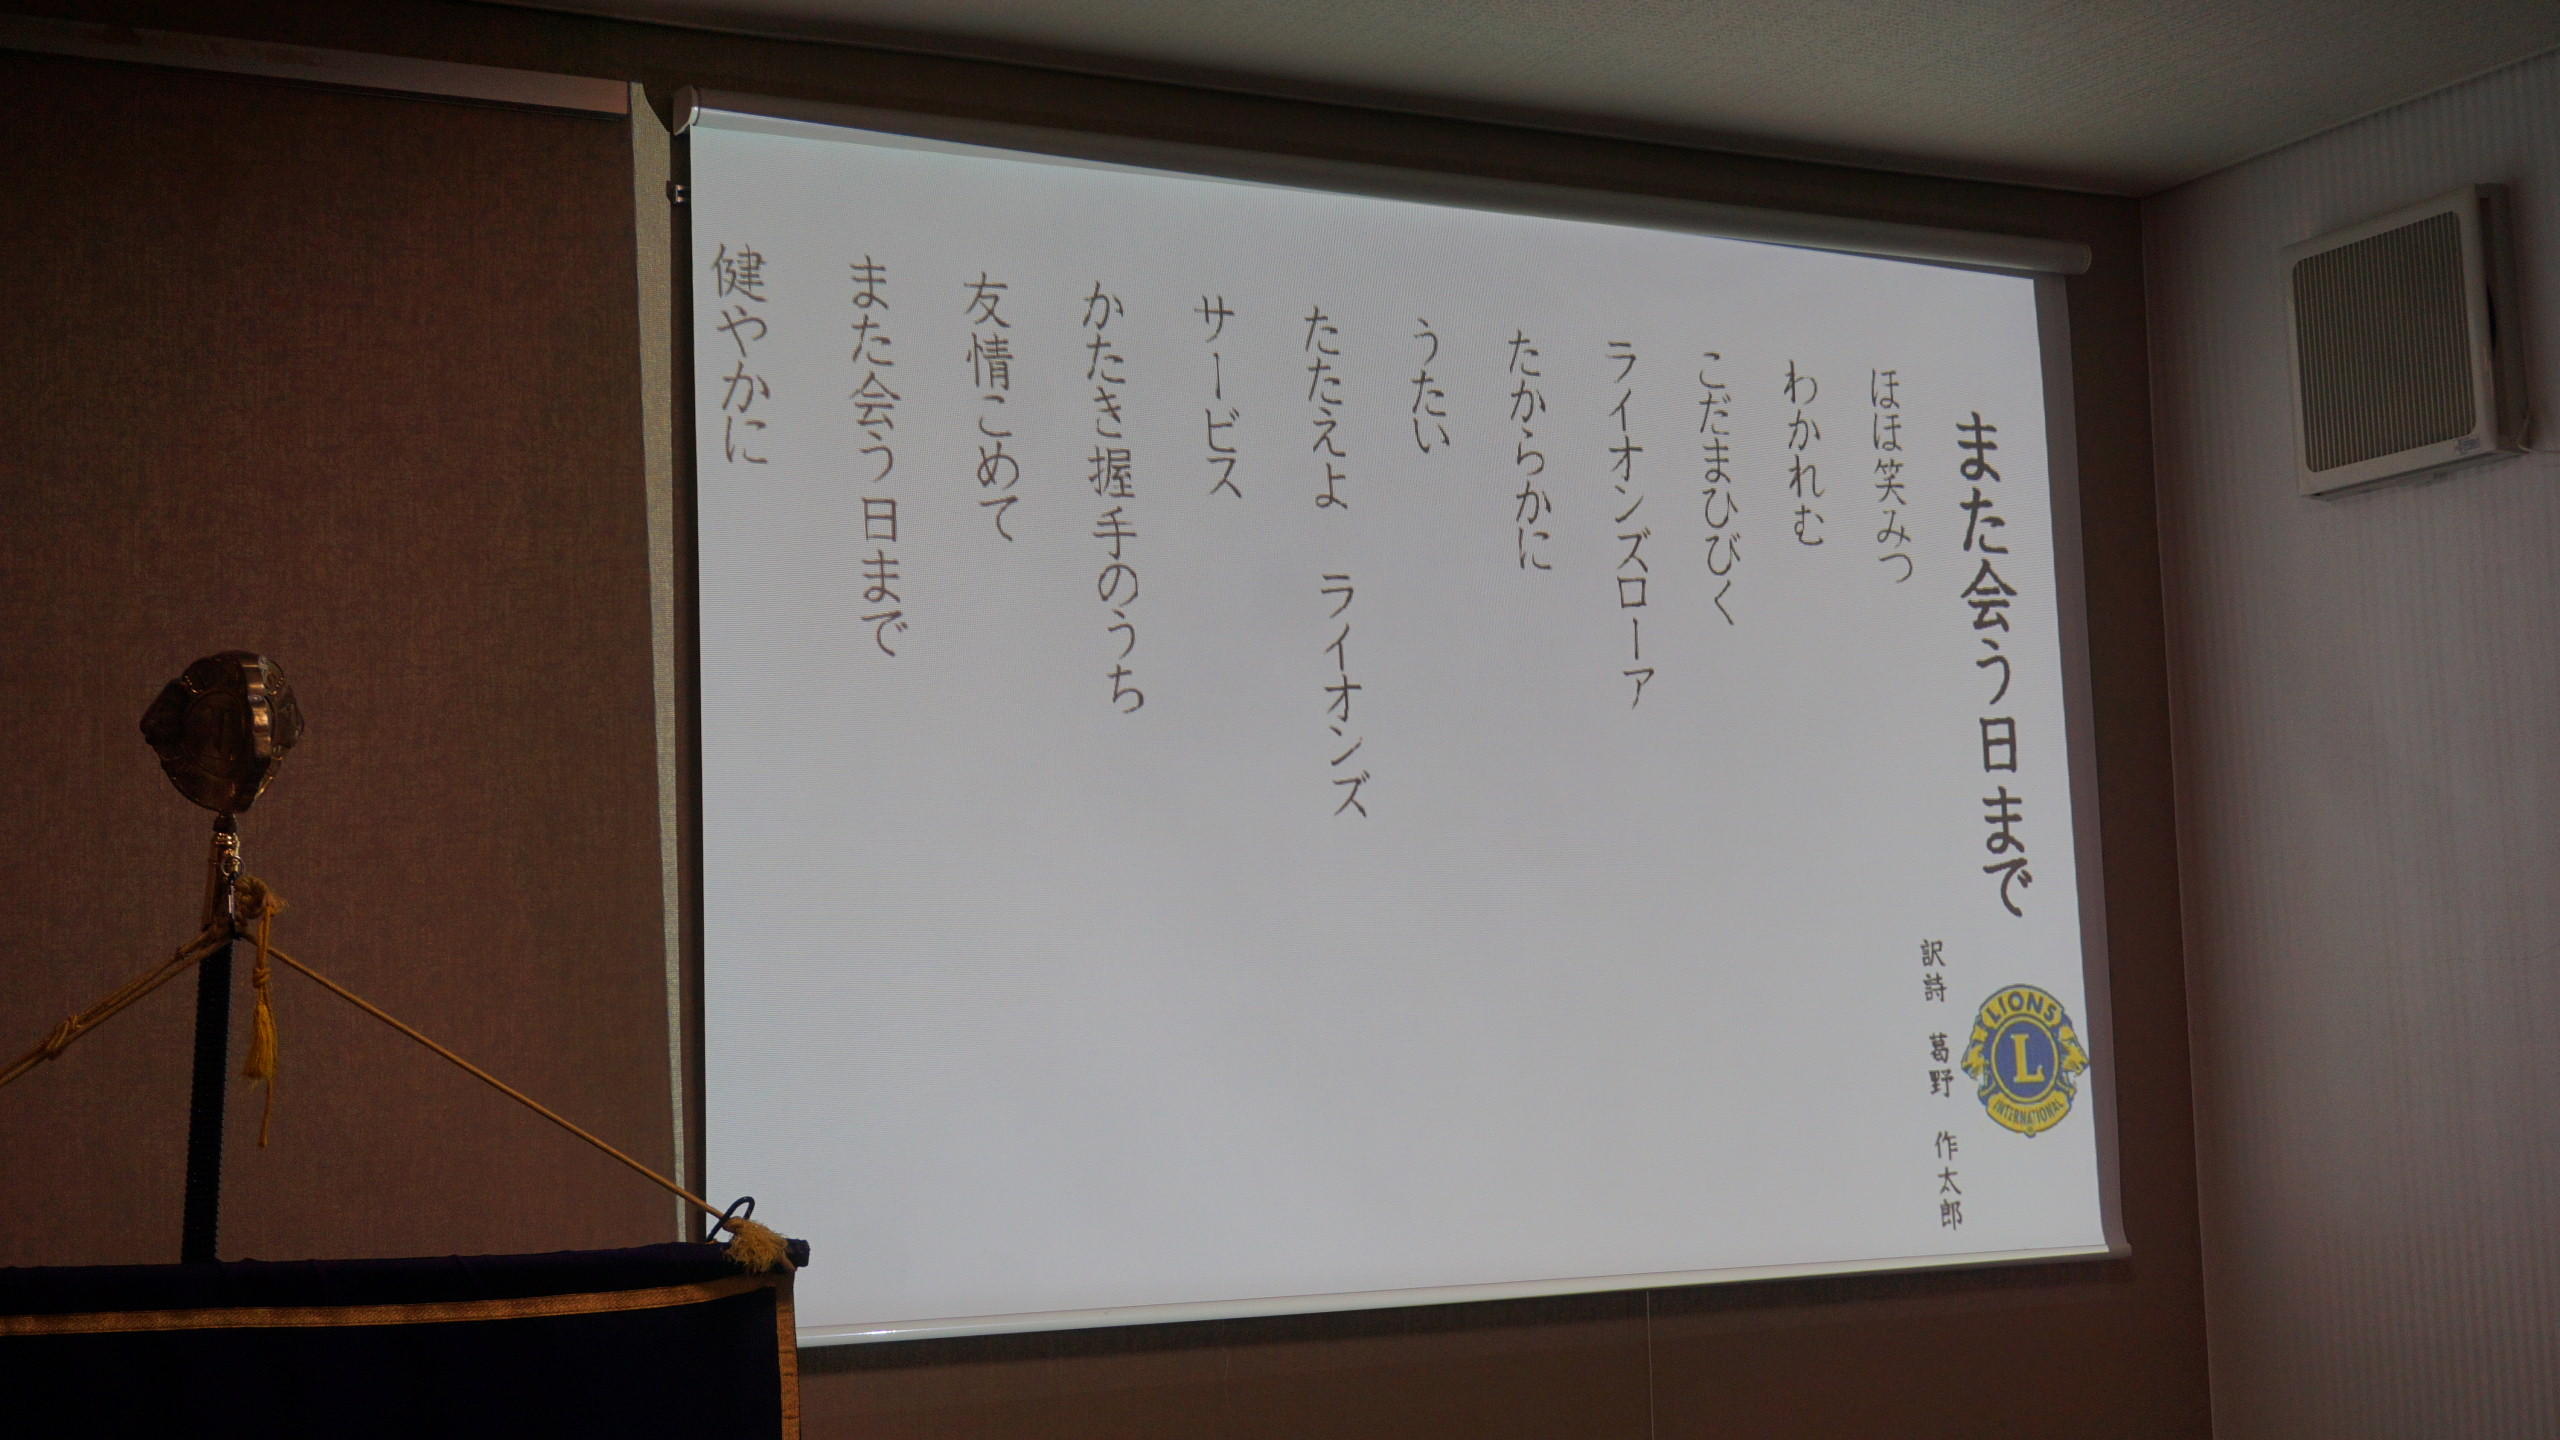 また会う日まで
訳詩 葛野 作太郎
ほほ笑みつ
わかれむ
こだまひびく
ライオンズローア
たからかに
うたい
たたえよ ライオンズ
サービス
かたき握手のうち
友情こめて
また会う日まで
健やかに
LIONS
L
INTERNATIONAL